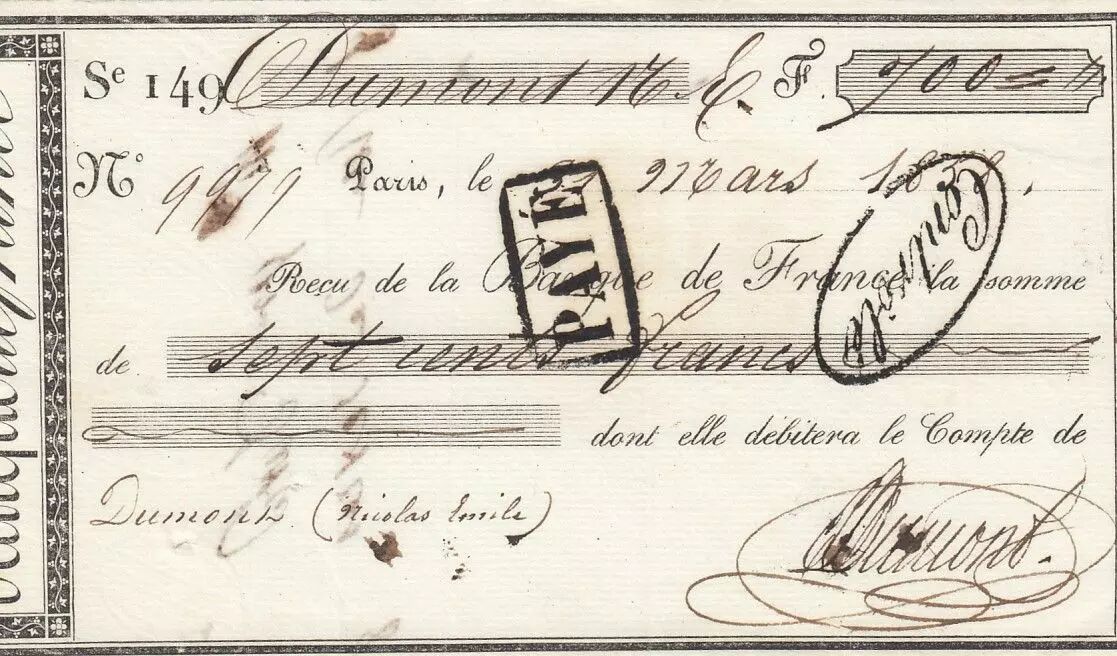 Se 149 Dumont N. E. F. 700 =
N° 9979 Paris, le Mars
Reçu de la Banque de France la somme
de sept cents francs
dont elle débitera le Compte de
Dumont (Nicolas Emile)
Dumont
PAYÉ
Contrôle